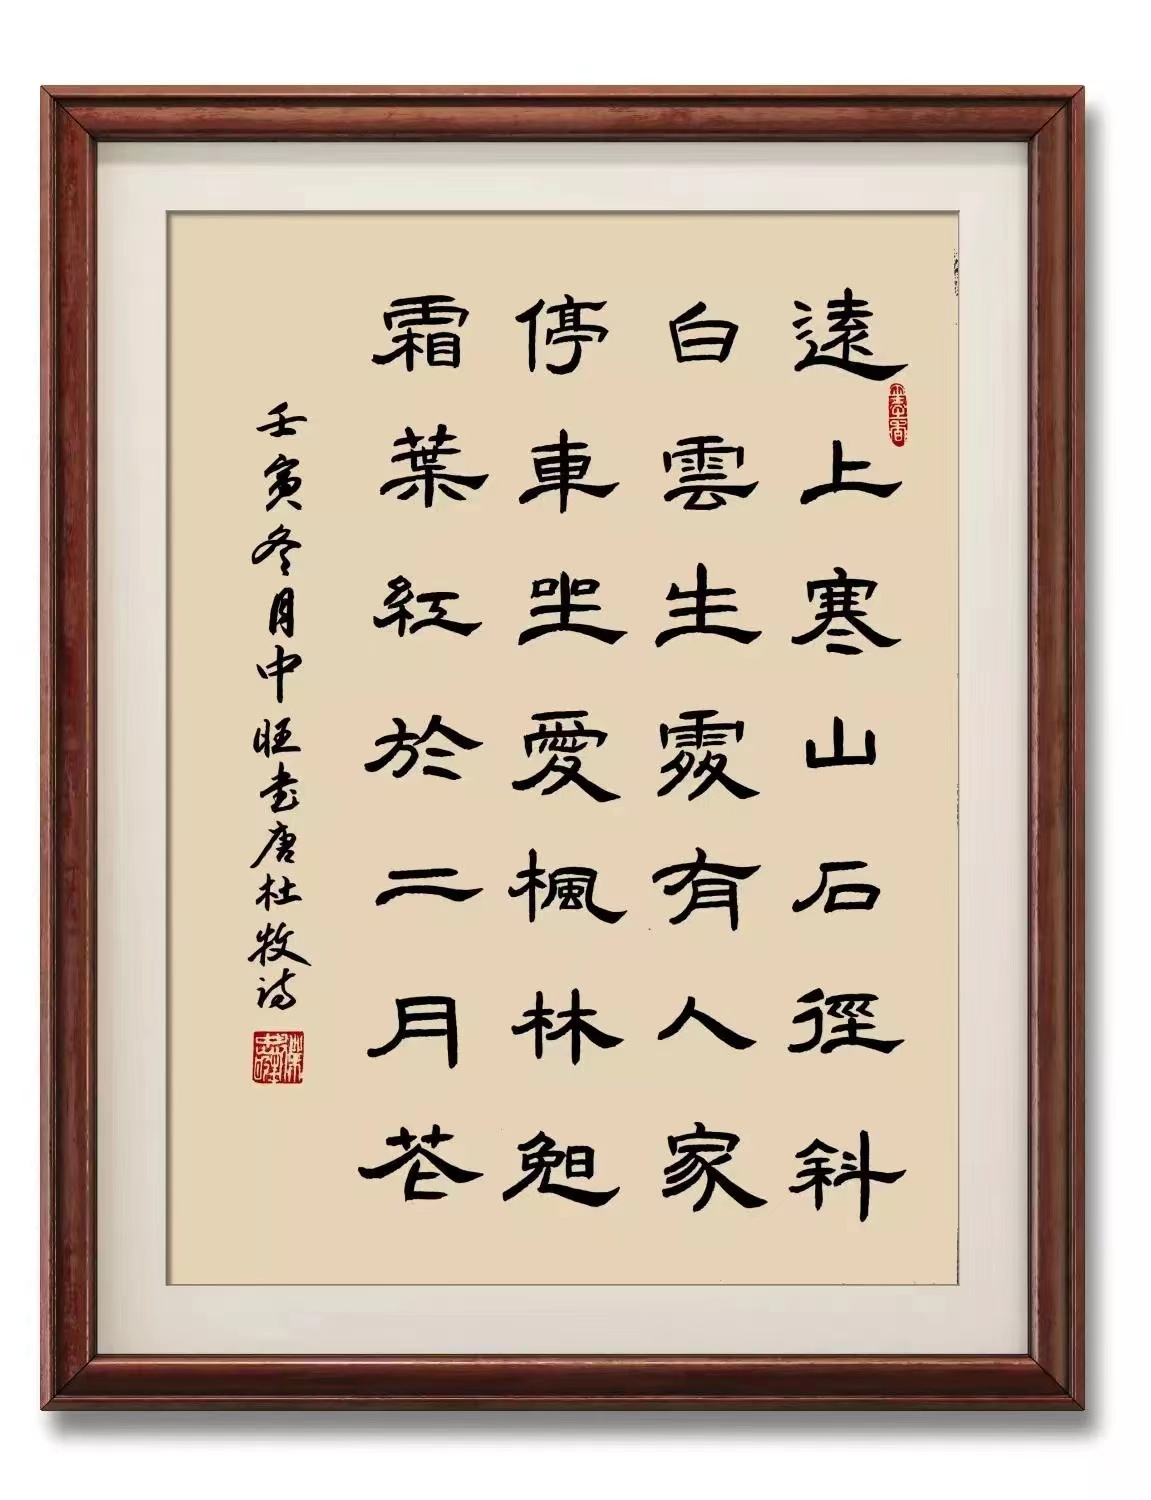 遠上寒山石徑斜
白雲生處有人家
停車坐愛楓林晚
霜葉紅於二月花
壬寅冬月中旺书唐杜牧诗
墨香